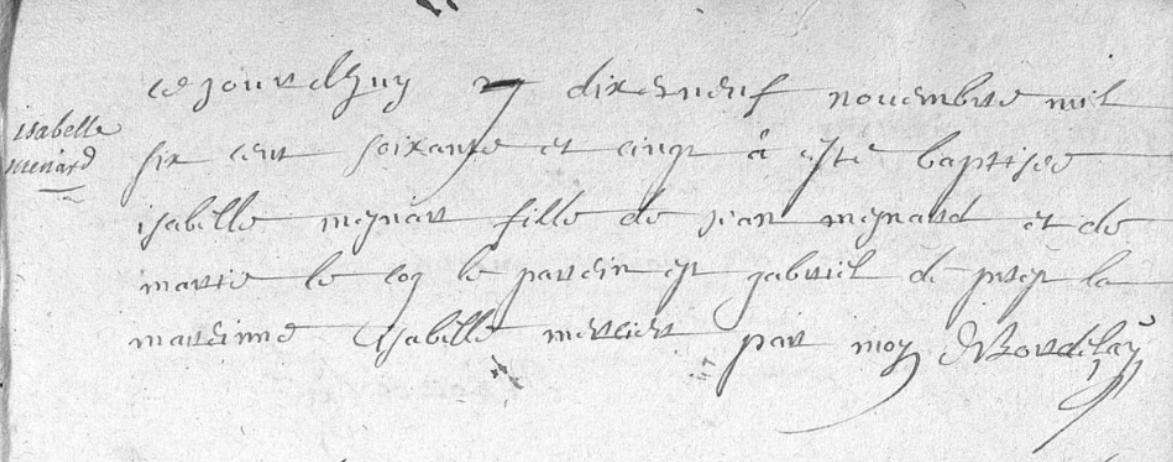 isabelle
menard
ce jourdhuy dixneuf nouembre mil
six cent soixante et cinq a esté baptisee
isabelle mesnart fille de jean mesnard et de
marie le coq le parein est gabriel de la
mareinne isabelle mercier par moy